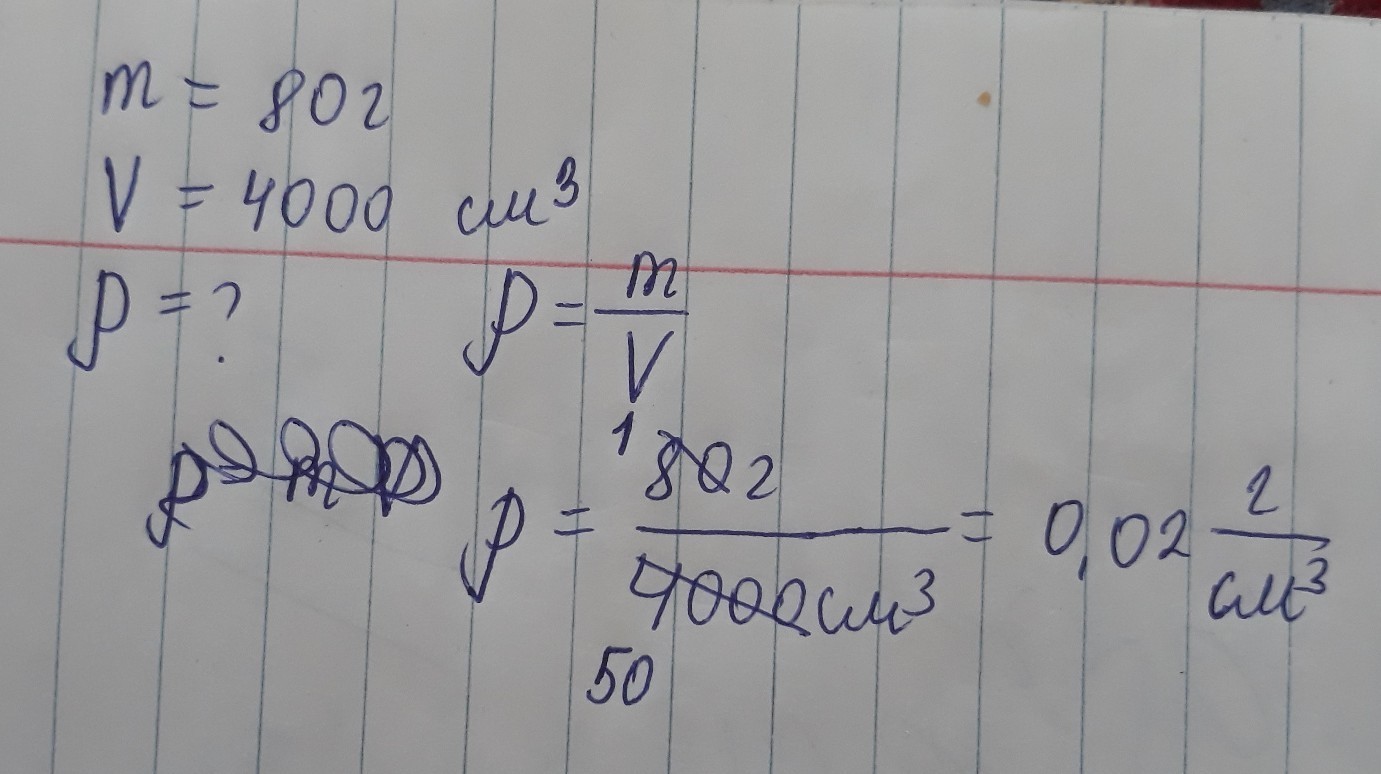 m = 80г
V = 4000 см³
ρ = ? ρ = m/V
ρ = 80г/4000см³ = 0,02 г/см³
1
50